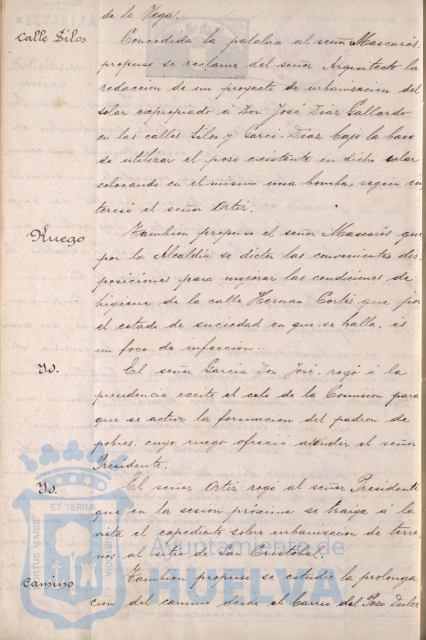 de la Vega.
Calle Silos
Concedida la palabra al señor Mascarós
propuso se reclame del señor Arquitecto la
redacción de un proyecto de urbanización del
solar expropiado á Don José Díaz Gallardo
en las calles Silos y Garci-Díaz bajo la base
de utilizar el pozo existente en dicho solar
colocando en el mismo una bomba, según in
teresó el señor Ortiz.
Ruego
También propuso el señor Mascarós que
por la Alcaldía se dicten las convenientes dis
posiciones para mejorar las condiciones de
higiene de la calle Hernan Cortés que por
el estado de suciedad en que se halla, es
un foco de infección.
Yd.
El señor García Don José, rogó á la
presidencia excite el celo de la Comisión para
que se active la formación del padron de
pobres, cuyo ruego ofreció atender el señor
Presidente.
Yd.
El señor Ortiz rogó al señor Presidente
que en la sesión próxima se traiga á la
vista el expediente sobre urbanización de terre
nos al sitio de San Cristobal.
Camino
También propuso se estudie la prolonga
cion del camino desde el barrio del Pozo Dulce
PORTUS MARIS ET TERRAE
Ayuntamiento de
HUELVA